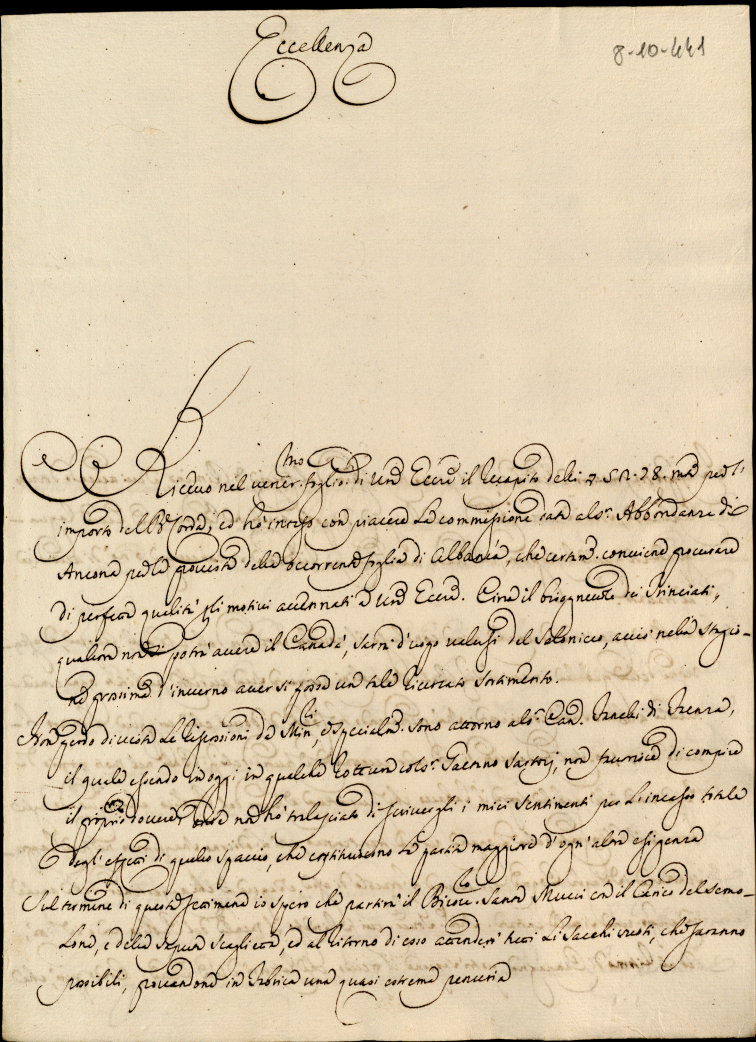 Eccellenza
8-10-441
Ricevo nel vener.mo foglio di Vrã Eccã il recapito delli 7 78. mã per l'
importo dell' ed ho inteso con piacere la commissione data al Sr. Abbondanze di
Ancona per la provista della occorrente foglia di Albania, che certam. conviene procurare
di perfetta qualità pli motivi accennati a Vrã Eccã. Circa il bisognevole dei Trinciati,
qualora non si potrà avere il Canadà, sarà d'uopo valersi del Salonicco, acciò nella stagio-
ne prossima d'inverno aver si possa un tale ricercato sortimento.
Non perdo di vista le riscossioni da Min.ti, e specialm. sono attorno al Sr. Can. di
il quale essendo in oggi in qualche rottura col Sr. Gaetano Sartorj, non di compire
il proprio dovere, non hò tralasciato di scrivergli i miei sentimenti per l'incasso totale
degli effetti di quello spaccio, che costituiscono la partita maggiore d'ogn'altra esigenza
Sul termine di questa settimana io spero che partirà il Santa Mucci con il Carico del Semo-
lone, e della scaglietta, ed al ritorno di esso attenderò tutti li Sacchi vuoti, che saranno
possibili, provandone in Fabrica una quasi estrema penuria